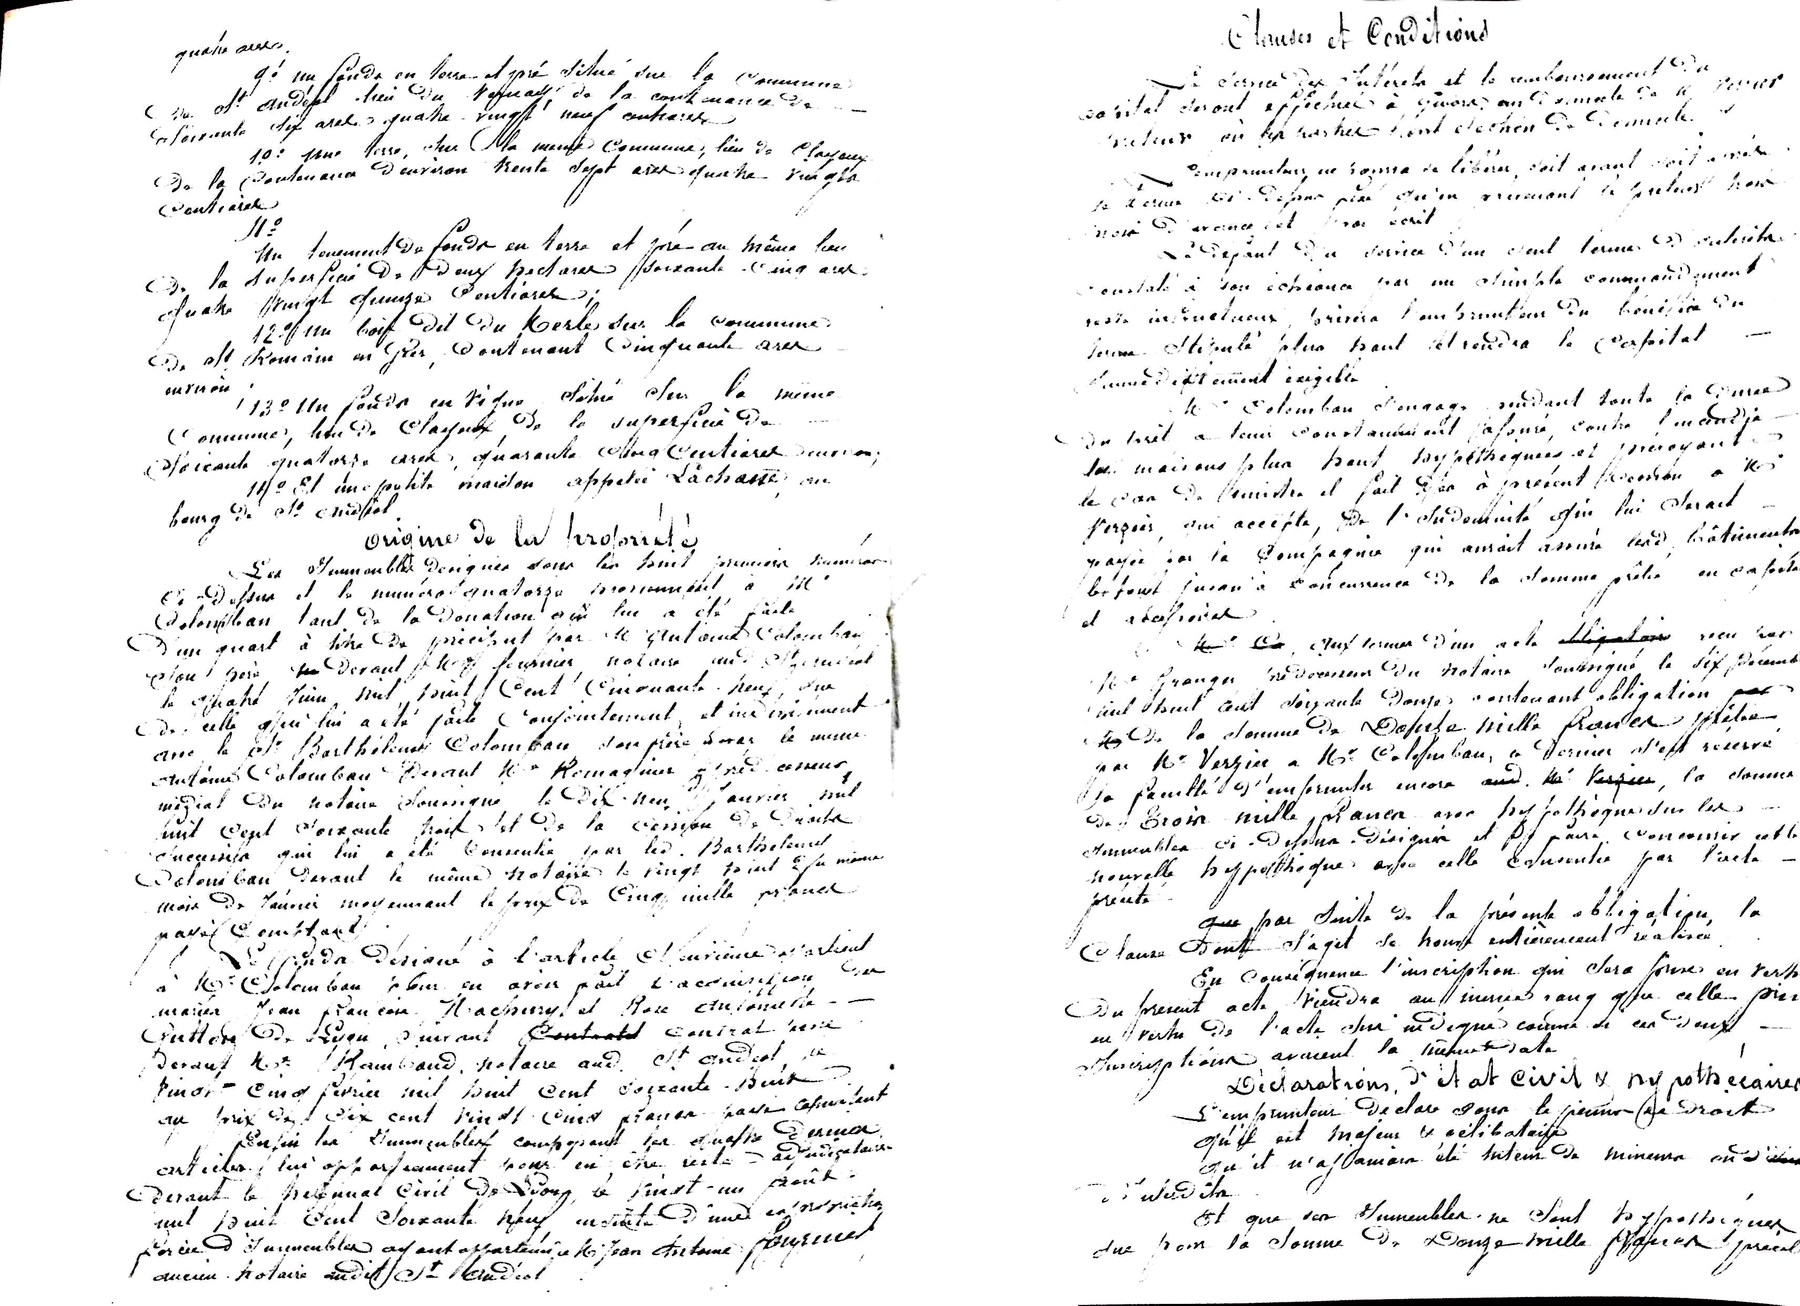 quatre ares.
9º un fonds en terre et pré situé sur la commune
de St Andéol lieu du Vernay de la contenance de
soixante six ares quatre vingt neuf centiares
10º une terre, sur la même commune, lieu de Clayeux
de la contenance d'environ trente sept ares quatre vingts
centiares
11º
Un tenement de fonds en terre et pré au même lieu
de la superficie de deux hectares soixante-cinq ares
quatre vingt quinze centiares;
12º Un bois dit du Merle sur la commune
de St Romain en Gier, contenant cinquante ares
environ;
13º Un fonds en vigne situé sur la même
commune, lieu de Clayeux, de la superficie de
soixante quatorze ares, quarante cinq centiares environ;
14º Et une petite maison appelée Lachasse, au
bourg de St Andéol
Origine de la propriété
Les Immeubles désignés sous les huit premiers numéros
ci-dessus et le numéro quatorze proviennent à Mr
Colomban tant de la donation qui lui a été faite
d'un quart à titre de préciput par Mr Antoine Colomban
son père, devant Me Fournier, notaire aud. St Andéol
le quatre Juin mil huit cent cinquante-neuf, que
de celle qui lui a été faite conjointement et indivisément
avec le Sr Barthélemy Colomban son frère par le même
Antoine Colomban devant Me Romagnier prédécesseur
médiat du notaire soussigné, le dix-neuf Janvier mil
huit cent soixante trois et de la cession de droits
successifs qui lui a été consentie par led. Barthélemy
Colomban devant le même notaire le vingt huit du même
mois de Janvier moyennant le prix de cinq mille francs
payés comptant.
Le fonds désigné à l'article neuvième appartient
à Mr Colomban pour en avoir fait l'acquisition des
mariés Jean François Hachury et Rose Antoinette
de Lyon, suivant contrat passé
devant Me Rambaud, notaire aud. St Andéol, le
vingt-cinq février mil huit cent soixante-huit
au prix de six cent vingt cinq francs payé comptant
Enfin les Immeubles composant les quatre derniers
articles lui appartiennent pour en être resté adjudicataire
devant le tribunal civil de Lyon, le vingt-un Août
mil huit cent soixante neuf ensuite d'une expropriation
forcée d'Immeubles ayant appartenu à Mr Jean Antoine Fournier
ancien notaire audit St Andéol
Clauses et Conditions
Le service des Intérêts et le remboursement du
capital seront effectués à Givors en domicile de Mr Verzier
prêteur où les parties font élection de domicile.
L'emprunteur ne pourra se libérer, soit avant soit après
le terme ci-dessus fixé qu'en prévenant le prêteur trois
mois d'avance et par écrit
Le défaut du service d'un seul terme d'intérêts
constaté à son échéance par un simple commandement
resté infructueux, privera l'emprunteur du bénéfice du
terme stipulé plus haut et rendra le capital
immédiatement exigible
Mr Colomban s'engage pendant toute la durée
du prêt à tenir constamment assuré, contre l'incendie
les maisons plus haut hypothéquées et prévoyant
le cas de sinistre il fait dès à présent cession à Mr
Verzier, qui accepte, de l'indemnité qui lui serait
payée par la Compagnie qui aurait assuré lesd. bâtiments
le tout jusqu'à concurrence de la somme prêtée en capital
et accessoires
Aux termes d'un acte obligation reçu par
Me Granger prédécesseur du notaire soussigné, le six décemb
mil huit cent soixante douze contenant obligation par
de la somme de Douze mille francs prêtée
par Mr Verzier à Mr Colomban, ce dernier s'est réservé
la faculté d'emprunter encore aud. Mr Verzier, la somme
de Trois mille francs avec hypothèque sur les
immeubles ci-dessus désignés et de faire concourir cette
nouvelle hypothèque avec celle consentie par l'acte
précité.
que par suite de la présente obligation, la
clause dont s'agit se trouve entièrement réalisée
En conséquence l'inscription qui sera prise en vertu
du présent acte viendra au même rang que celle prise
en vertu de l'acte sus indiqué comme si ces deux
inscriptions avaient la même date
Déclarations d'état civil & hypothécaires
L'emprunteur déclare sous les peines de droit
qu'il est majeur & célibataire
qu'il n'a jamais été tuteur de mineurs ou
d'interdits
Et que ses Immeubles ne sont hypothéqués
que pour la somme de Douze mille francs